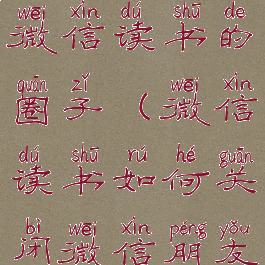 wēi xìn dú shū de
微信读书的
quān zǐ wēi xìn
圈子（微信
dú shū rú hé guān
读书如何关
bì wēi xìn péng yǒu
闭微信朋友